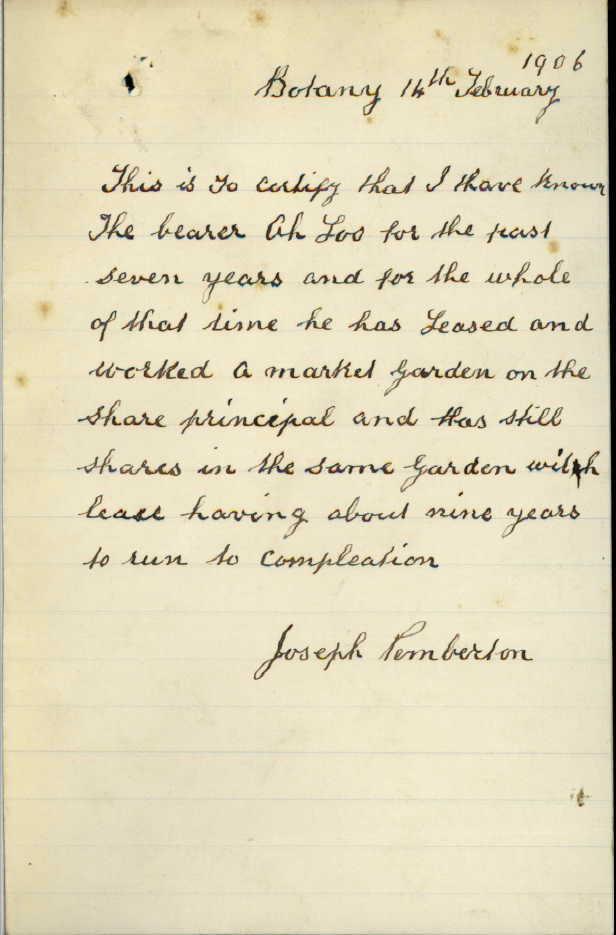 1906
Botany 14th February
This is to certify that I Have known
The bearer Ah Loo for the past
seven years and for the whole
of that time he has Leased and
worked a market Garden on the
share principal and Has still
shares in the same Garden with
lease having about nine years
to run to compleation
Joseph Pemberton